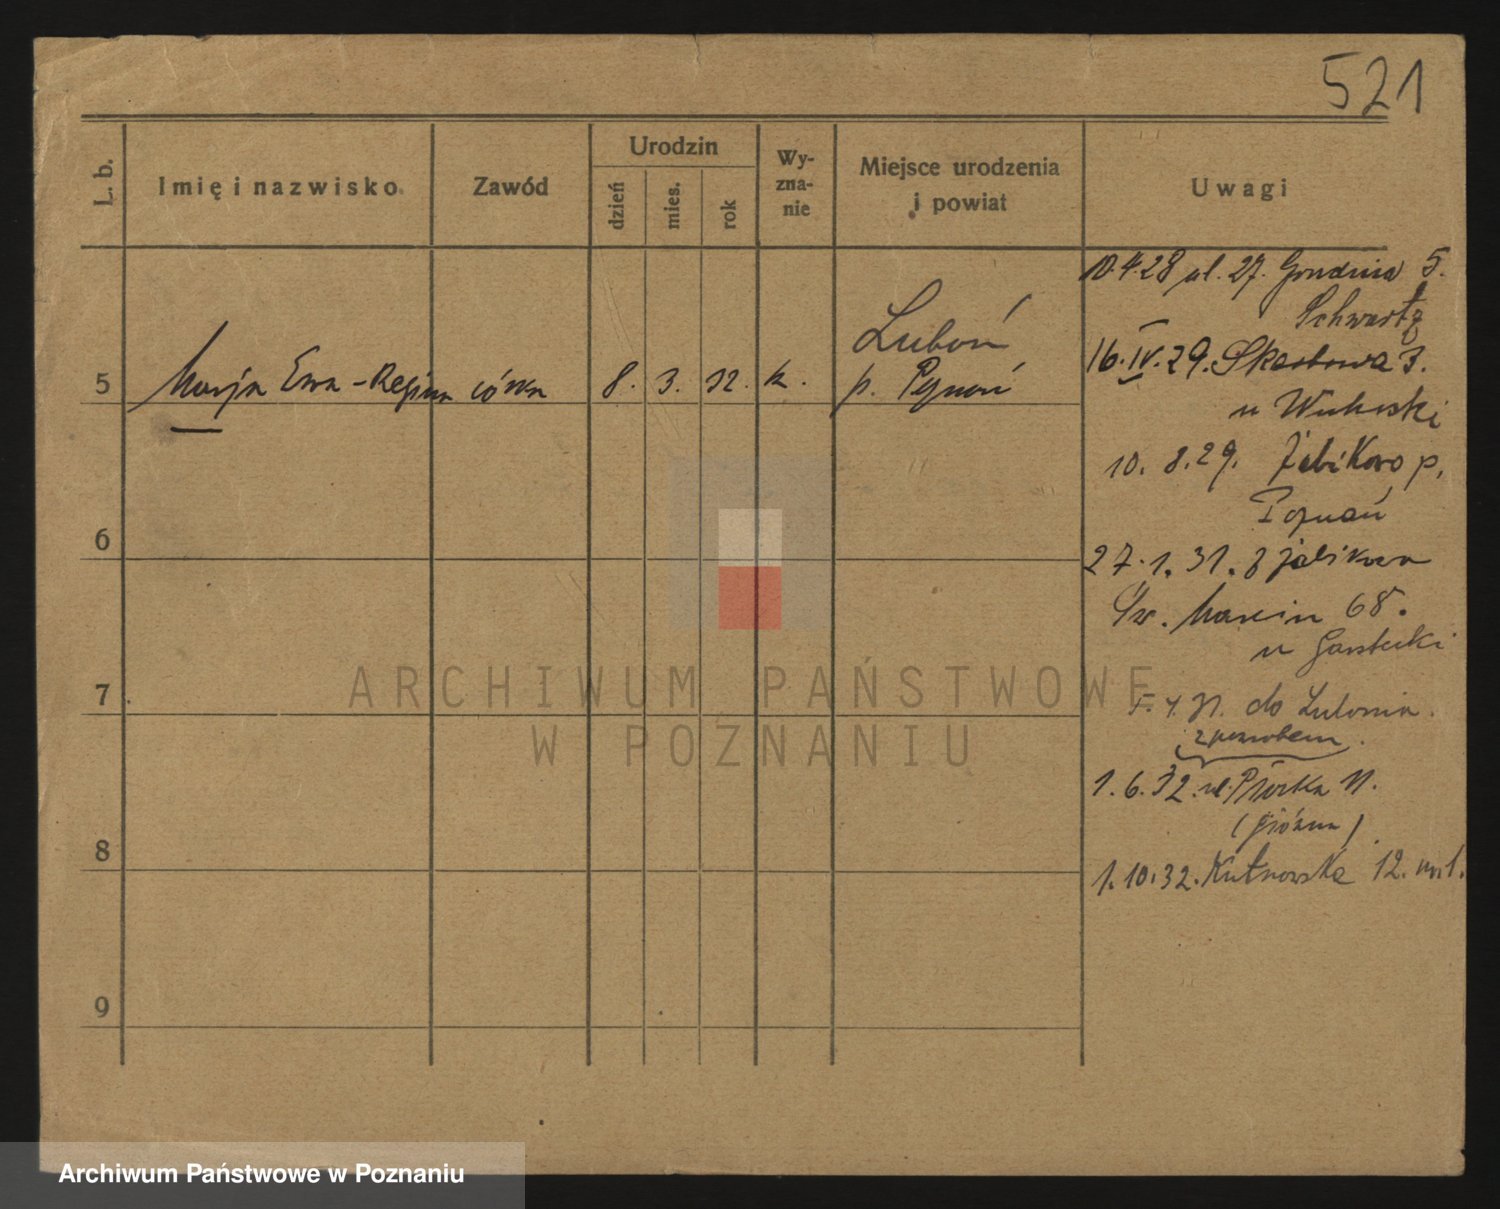 521
L. b.
Imię i nazwisko
Zawód
Urodzin
dzień
mies.
rok
Wy-
zna-
nie
Miejsce urodzenia
i powiat
Uwagi
5
Marja Ewa-Regina córka 8. 3. 32. k.
Luboń
p. Poznań
6
7
8
9
10.4.28 ul. 27. Grudnia 5.
Schwartz
16.IV.29. Skarbowa
u
10. 8.29. Żabikowo p.
Poznań
27.1.31. z Żabikowa
Św. Marcin 68.
u
do Lubonia.
1.6.32. ul. 11.
1.10.32. Kutnowska 12.
ARCHIWUM PAŃSTWOWE
W POZNANIU
Archiwum Państwowe w Poznaniu